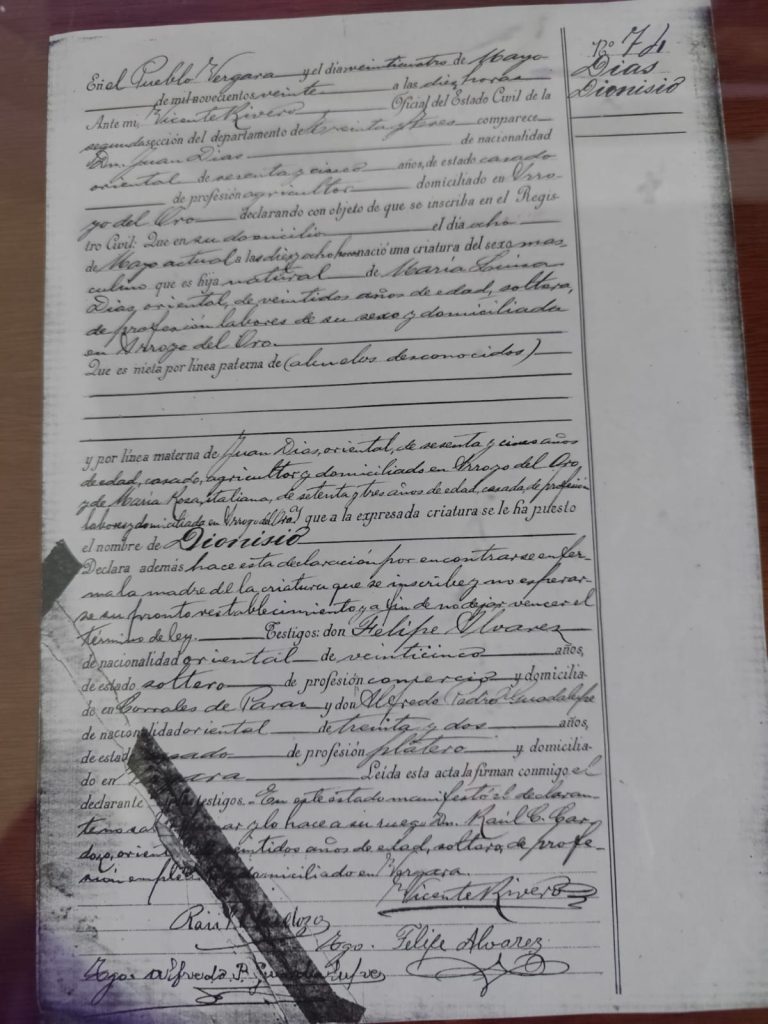 Nº 74
Dias
Dionisio
En el Pueblo Vergara y el dia veinticuatro de Mayo
de mil novecientos veinte a las diez horas
Ante mi, Vicente Rivero Oficial del Estado Civil de la
segunda sección del departamento de Treinta y Tres comparece
Dn. Juan Dias de nacionalidad
oriental de sesenta y cinco años, de estado casado
de profesión agricultor domiciliado en Arro-
yo del Oro declarando con objeto de que se inscriba en el Regis-
tro Civil: Que en su domicilio el dia ocho
de Mayo actual a las diez ocho horas nació una criatura del sexo mas
culino que es hija natural de María Luisa
Diaz, oriental, de veintidos años de edad, soltera,
de profesión labores de su sexo y domiciliada
en Arroyo del Oro.
Que es nieta por línea paterna de (abuelos desconocidos)
y por línea materna de Juan Dias, oriental, de sesenta y cinco años
de edad, casado, agricultor y domiciliado en Arroyo del Oro
y de María Rosa, italiana, de setenta y tres años de edad, casada, de profesión
labores y domiciliada en Arroyo del Oro y que a la expresada criatura se le ha puesto
el nombre de Dionisio
Declara además hace esta declaración por encontrarse enfer-
ma la madre de la criatura que se inscribe y no esperar-
se su pronto restablecimiento y a fin de no dejar vencer el
término de ley. Testigos: don Felipe Alvarez
de nacionalidad oriental de veinticinco años,
de estado soltero de profesión comercio y domicilia-
do en Corrales de Parao y don Alfredo Pedro Guadalupe
de nacionalidad oriental de treinta y dos años,
de estado casado de profesión platero y domicilia-
do en Leída esta acta la firman conmigo el
declarante testigos. En este estado manifestó el declaran-
te no y lo hace a su ruego Dn. Raúl C. Car
dozo, años de edad, soltero, de profe-
sión domiciliado en Vergara.
Vicente Rivero
Raúl
Tgo. Felipe Alvarez
Tgo. Alfredo P.